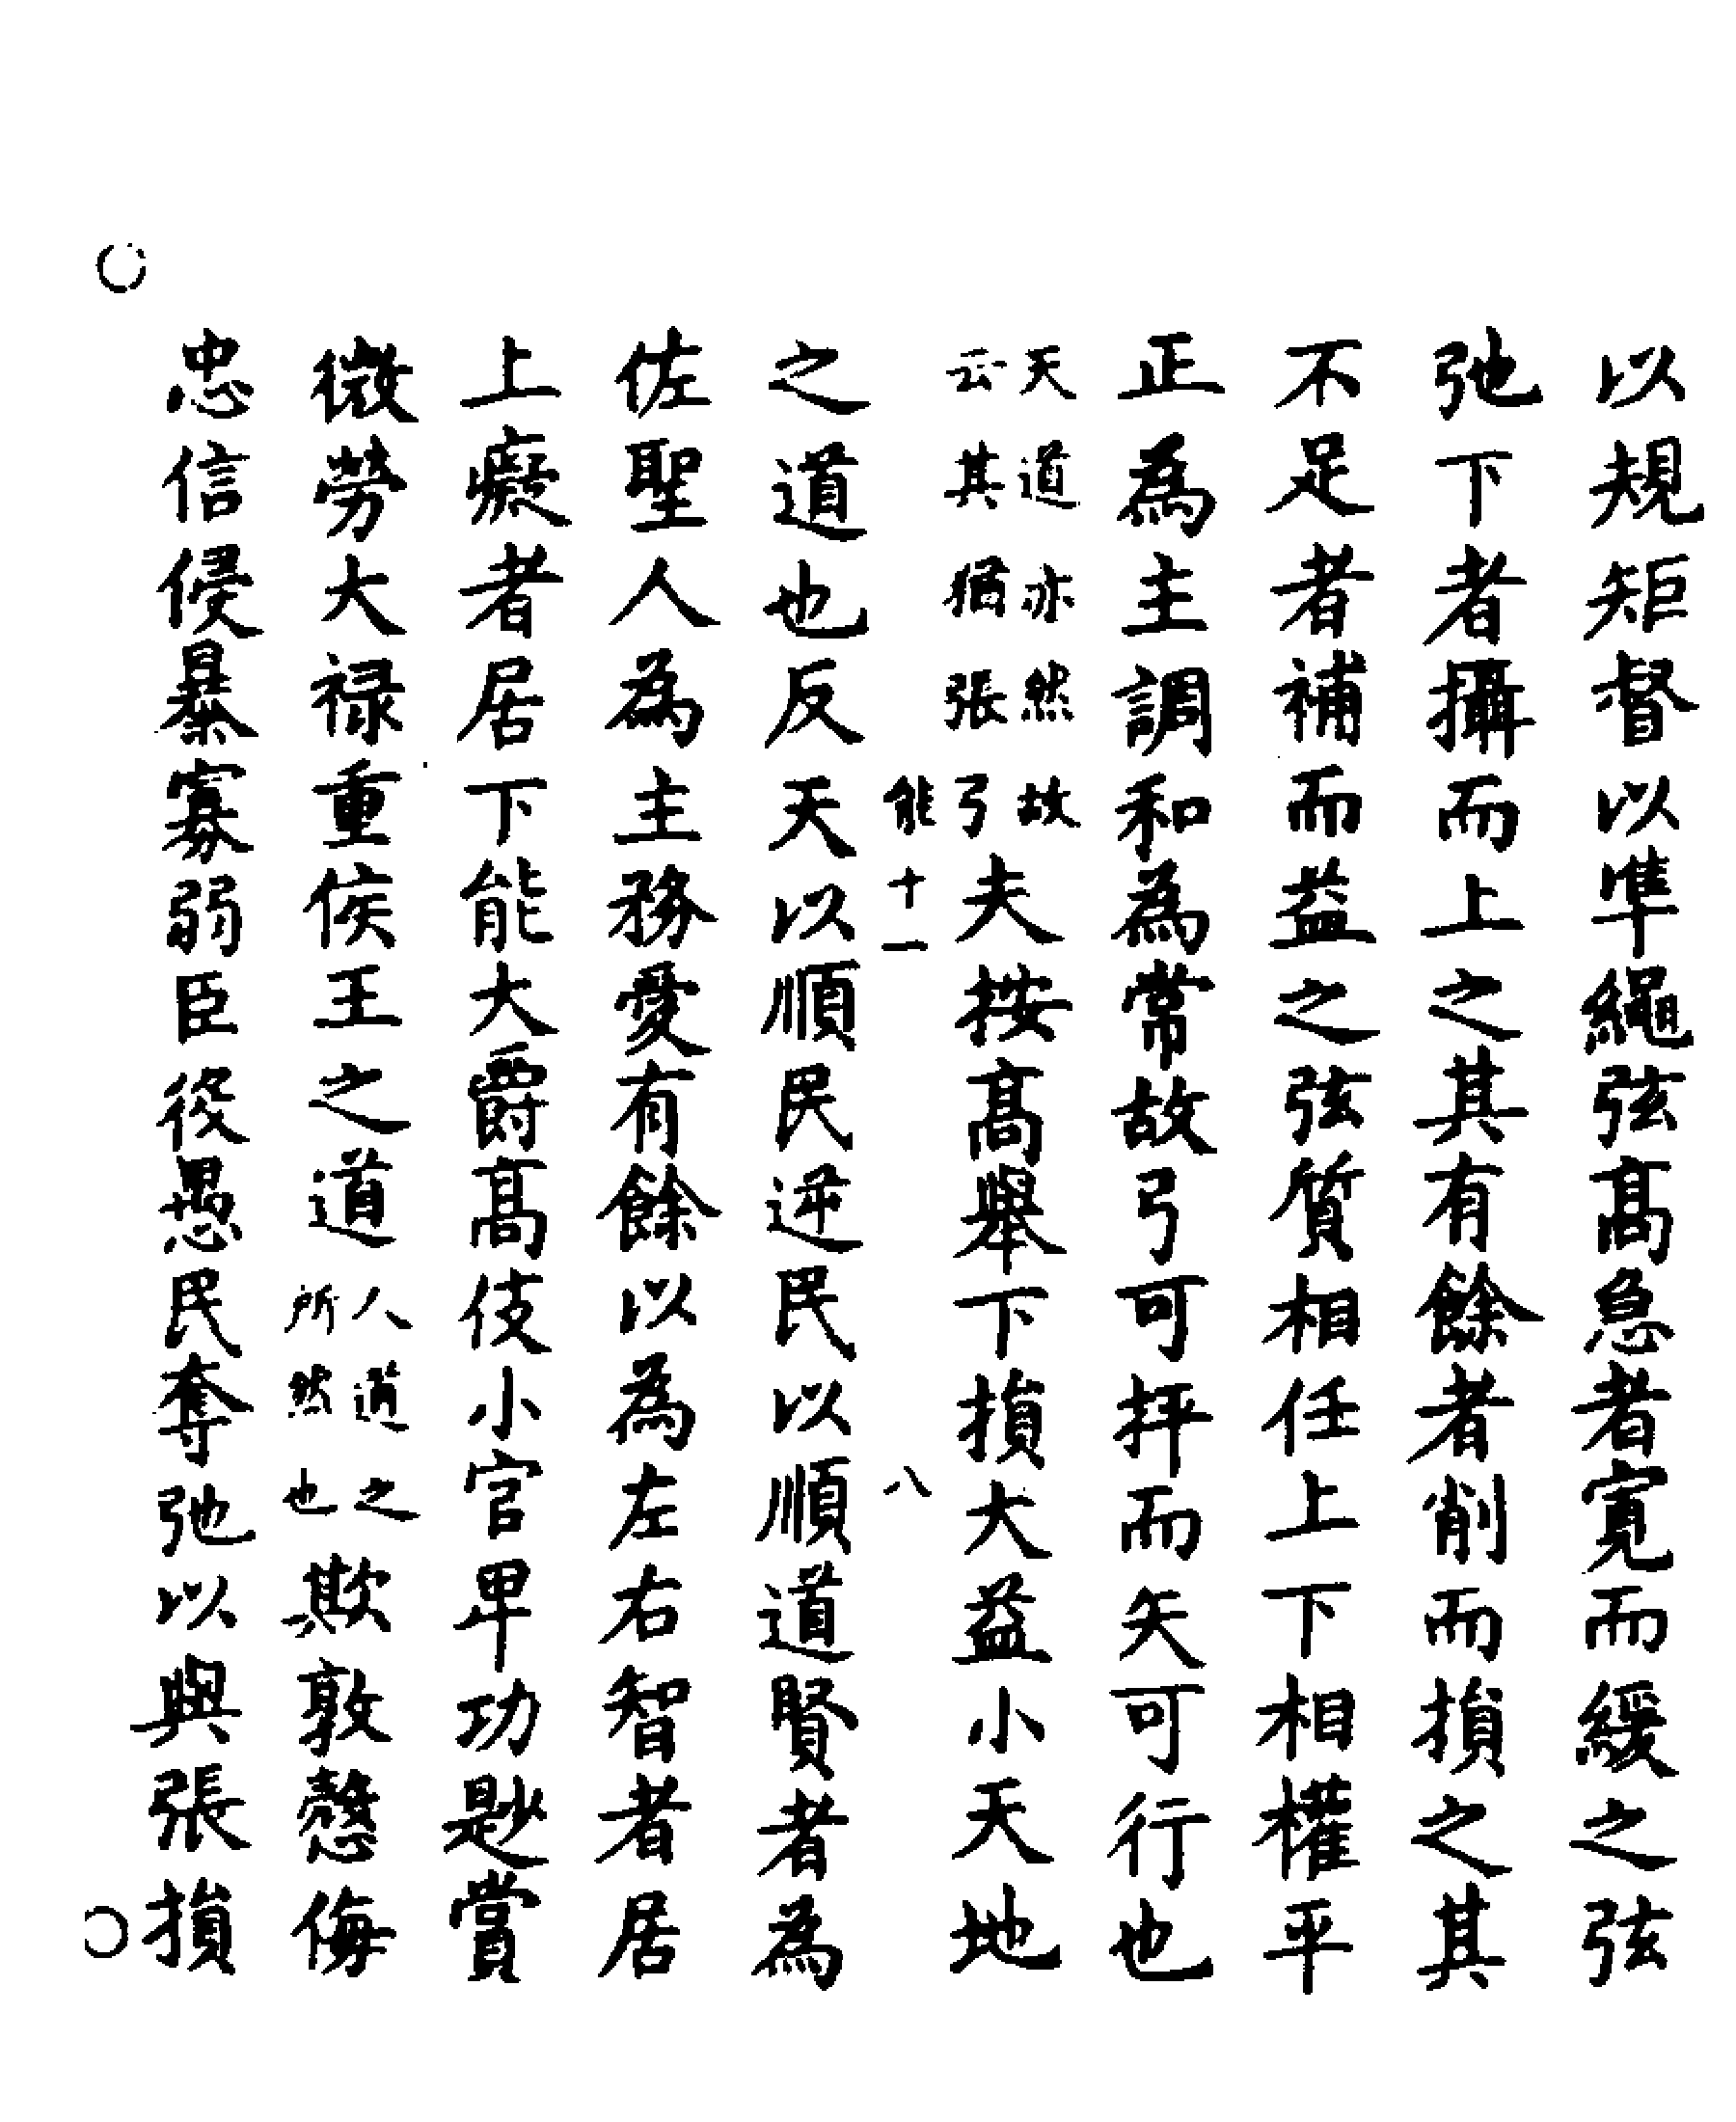 以規矩督以準繩弦髙急者寛而緩之弦
弛下者攝而上之其有餘者削而損之其
不足者補而益之弦質相任上下相權平
正為主調和為常故弓可抨而矢可行也
天道亦然故
云其猶張弓
夫按髙舉下損大益小天地
能十一
八
之道也反天以順民逆民以順道賢者為
佐聖人為主務愛有餘以為左右智者居
上癡者居下能大爵髙伎小官卑功尠賞
微勞大禄重侯王之道
人道之
所然也
欺敦慤侮
忠信侵暴寡弱臣役愚民奪弛以與張損